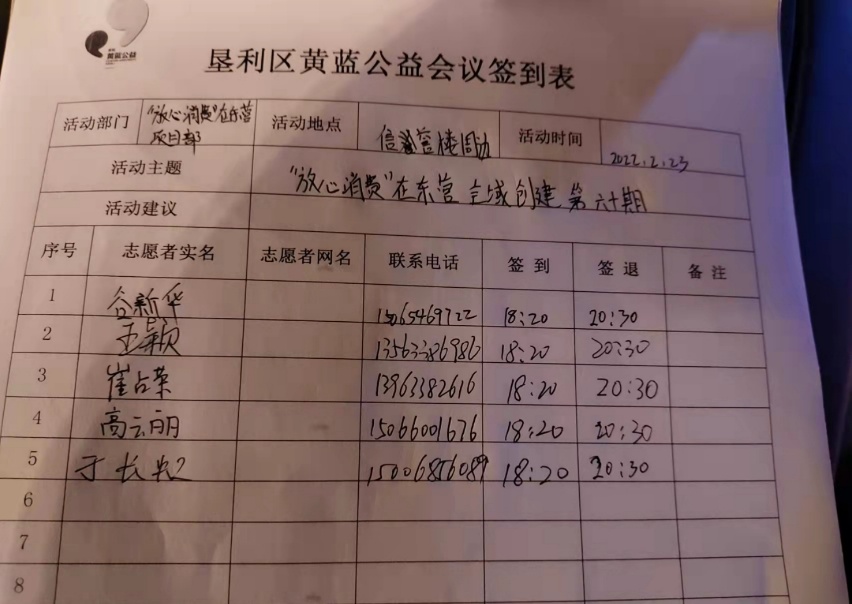 黄蓝公益
垦利区黄蓝公益会议签到表
活动部门 "放心消费"在东营项目部 活动地点 信誉楼周边 活动时间 2022.2.23
活动主题 "放心消费"在东营 全域创建 第六十期
活动建议
序号 志愿者实名 志愿者网名 联系电话 签到 签退 备注
1 谷新华 15065469722 18:20 20:30
2 王颖 13563386986 18:20 20:30
3 崔占荣 13963382616 18:20 20:30
4 高云丽 15066001676 18:20 20:30
5 于长 15006856089 18:20 20:30
6
7
8